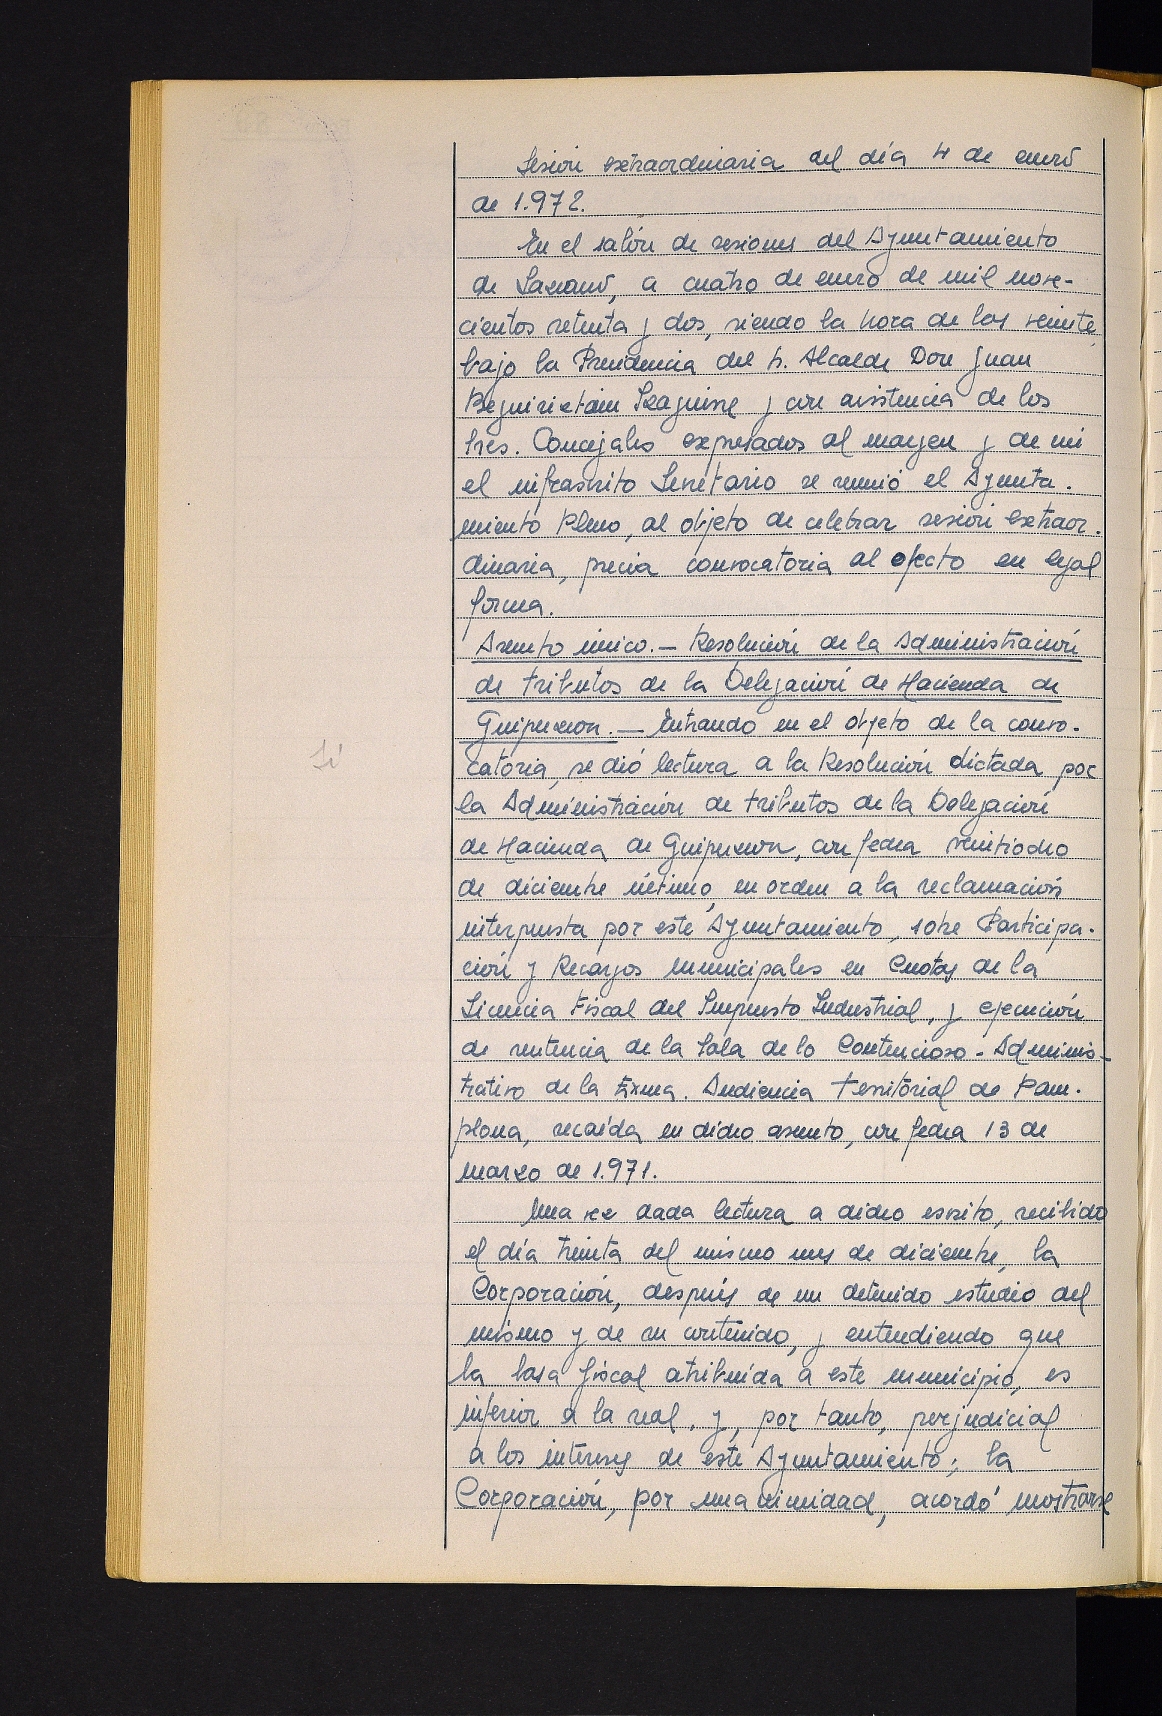 Sesión extraordinaria del día 4 de enero
de 1.972.
En el salón de sesiones del Ayuntamiento
de Lazcano, a cuatro de enero de mil nove-
cientos setenta y dos, siendo la hora de las veinte,
bajo la Presidencia del Sr. Alcalde Don Juan
Beguiristain Izaguirre y con asistencia de los
Sres. Concejales expresados al margen y de mi
el infrascrito Secretario se reunió el Ayunta-
miento Pleno, al objeto de celebrar sesión extraor-
dinaria, previa convocatoria al efecto en legal
forma.
Asunto único.- Resolución de la Administración
de tributos de la Delegación de Hacienda de
Guipuzcoa.- Entrando en el objeto de la convo-
Si
catoria, se dió lectura a la Resolución dictada por
la Administración de tributos de la Delegación
de Hacienda de Guipuzcoa, con fecha veintiocho
de diciembre último, en orden a la reclamación
interpuesta por este Ayuntamiento, sobre Participa-
ción y Recargos municipales en Cuotas de la
Licencia Fiscal del Impuesto Industrial, y ejecución
de sentencia de la Sala de lo Contencioso-Adminis-
trativo de la Exma. Audiencia Territorial de Pam-
plona, recaída en dicho asunto, con fecha 13 de
marzo de 1.971.
Una vez dada lectura a dicho escrito, recibido
el día treinta del mismo mes de diciembre, la
Corporación, después de un detenido estudio del
mismo y de su contenido, y entendiendo que
la basa fiscal atribuída a este municipio, es
inferior a la real, y, por tanto, perjudicial
a los intereses de este Ayuntamiento; la
Corporación, por unanimidad, acordó mostrarse